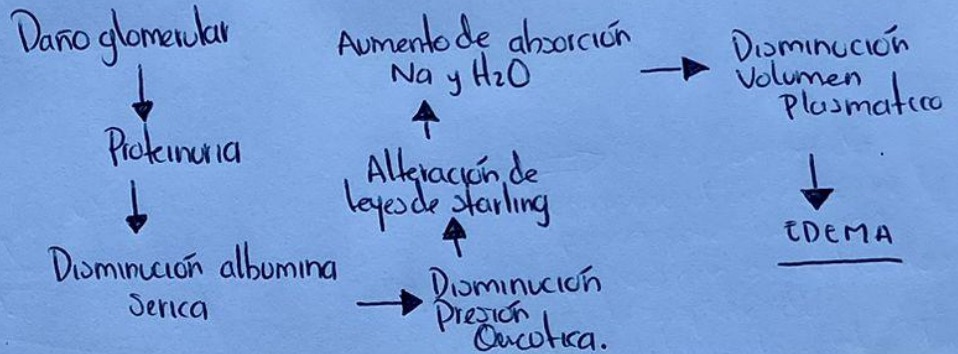 Daño glomerular
Proteinuria
Disminución albumina
Serica
Disminución
Presión
Oncotica.
Alteración de
leyes de starling
Aumento de absorción
Na y H₂O
Disminución
Volumen
Plasmatico
EDEMA